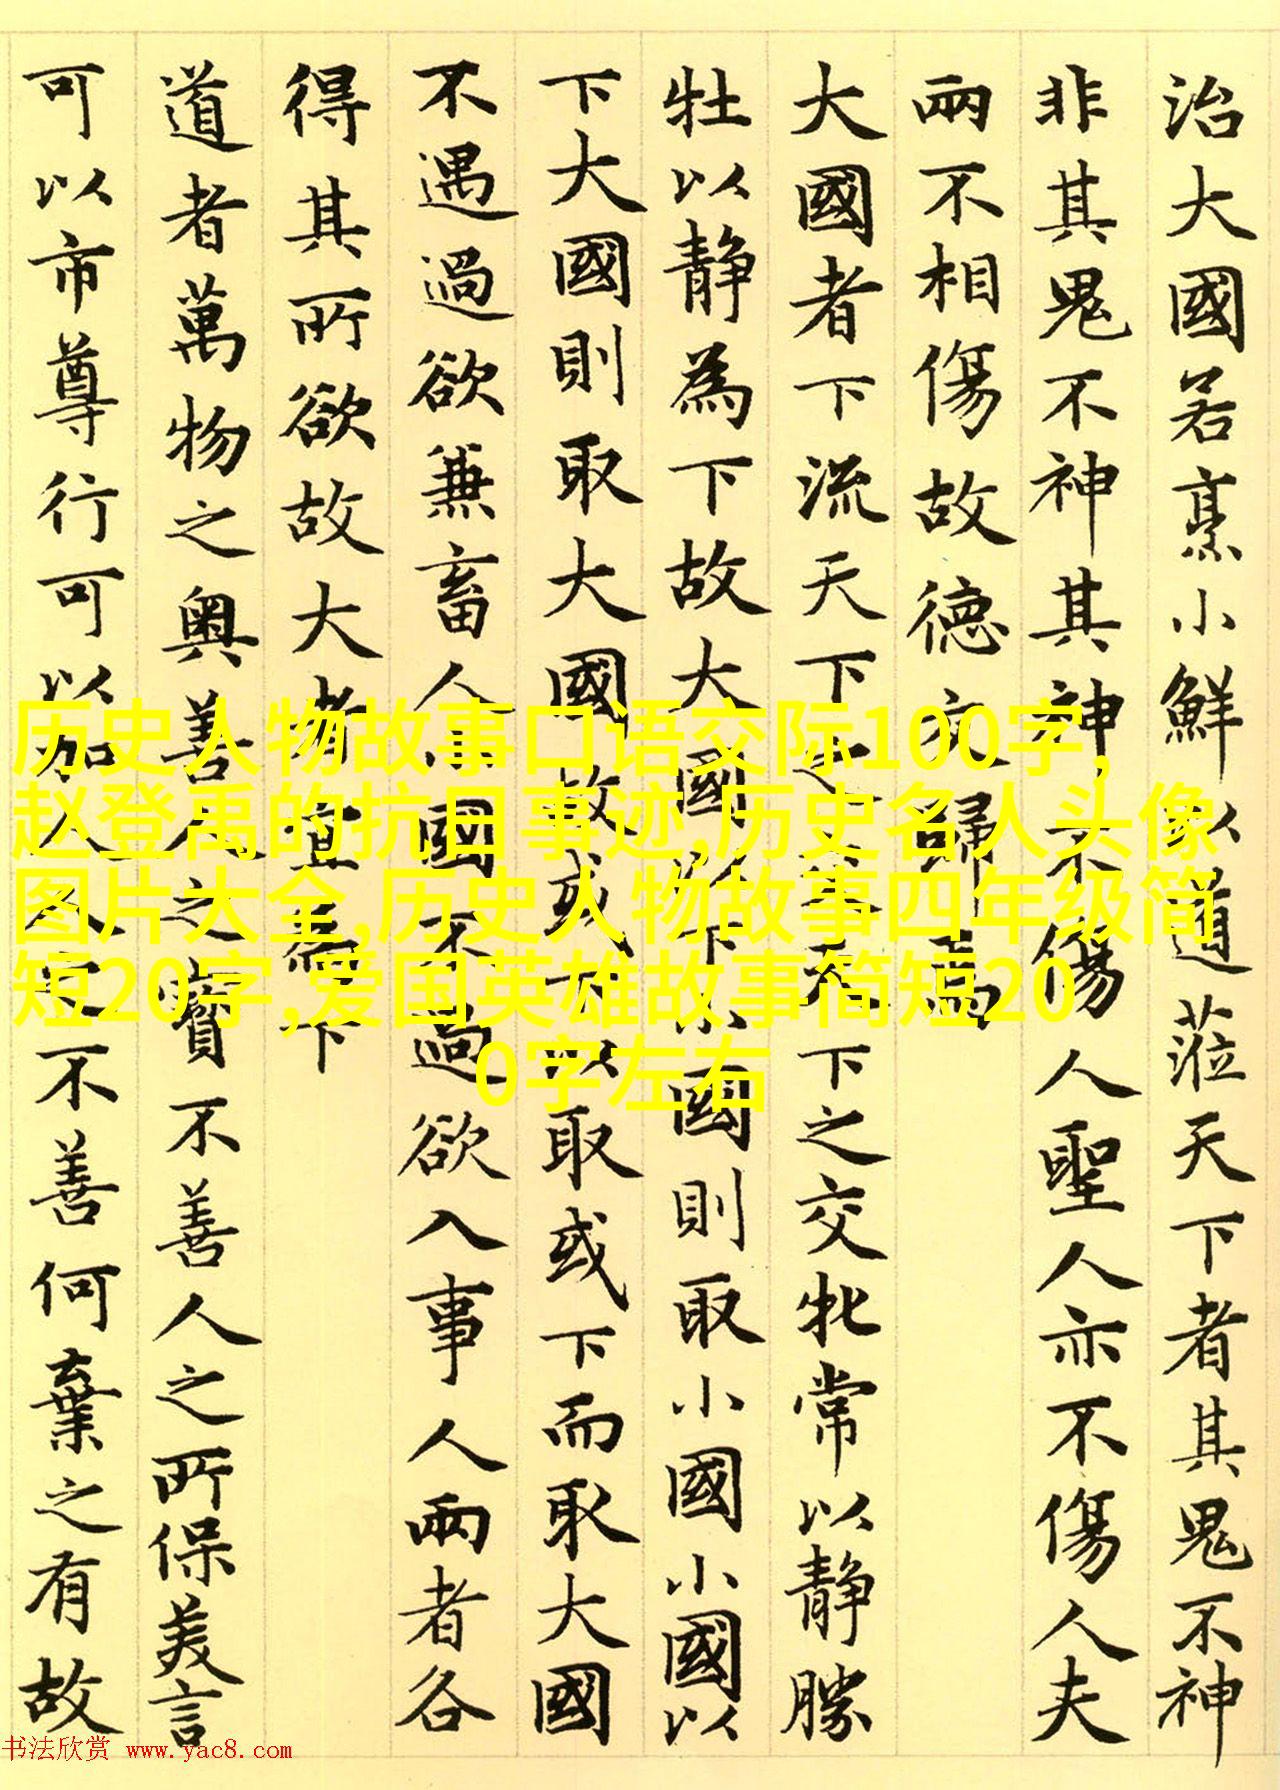 治大國若烹小鮮以道蒞天下者其鬼不神
非其鬼不神其神不傷人聖人亦不傷人夫
兩不相傷故德交歸焉
大國者下流天下之天下之交牝常以靜勝
牡以靜為下故大國以下小國則取小國小國以
下大國則取大國故或下以取或下而取大國
不遇過欲兼畜人小國不過欲入事人兩者各
得其所欲故大者宜為下
道者萬物之奥善人之寶不善人之所保美言
可以市尊行可以加人人之不善何棄之有故
历史人物故事口语交际100字,
赵登禹的抗日事迹,历史名人头像
图片大全,历史人物故事四年级简
短20字,爱国英雄故事简短20
0字左右
书法欣赏 www.yac8.com